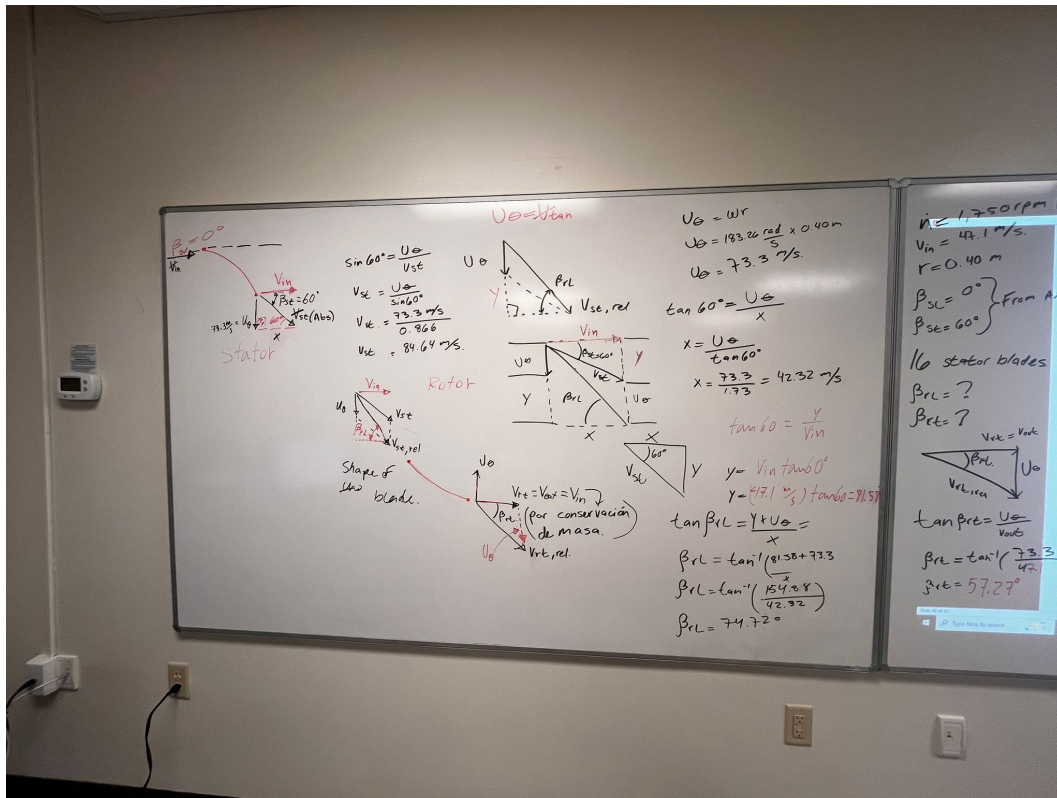 β_sL = 0°
V_in
V_in
β_st = 60°
73.3 m/s = U_θ
60°
V_st (Abs)
x
Stator
sin 60° = U_θ / V_st
V_st = U_θ / sin 60°
V_st = 73.3 m/s / 0.866
V_st = 84.64 m/s.
V_in
U_θ
V_st
β_rL
V_st, rel
Rotor
Shape of
blade.
U_θ = V_tan
U_θ
Y
β_rL
V_st, rel
V_in
β_st=60°
Y
U_θ
V_st
Y
β_rL
U_θ
x
x
60°
V_st
Y
U_θ
V_rt = V_out = V_in
β_rt
(por conservación
de masa.)
U_θ
V_rt, rel.
U_θ = ωr
U_θ = 183.26 rad/s x 0.40 m
U_θ = 73.3 m/s.
tan 60° = U_θ / x
x = U_θ / tan 60°
x = 73.3 / 1.73 = 42.32 m/s
tan 60 = Y / V_in
y = V_in tan 60°
y = (47.1 m/s) tan 60 = 81.58
tan β_rL = Y + U_θ / x =
β_rL = tan⁻¹ (81.58 + 73.3 / x
β_rL = tan⁻¹ (154.88 / 42.32)
β_rL = 74.72°
ṅ = 1,750 rpm
V_in = 47.1 m/s.
r = 0.40 m
β_sL = 0°
β_st = 60°
} From A
16 stator blades
β_rL = ?
β_rt = ?
V_rt = V_out
β_rt
U_θ
V_rt, rel
tan β_rt = U_θ / V_out
β_rt = tan⁻¹ (73.3 / 47
β_rt = 57.27°
Type here to search